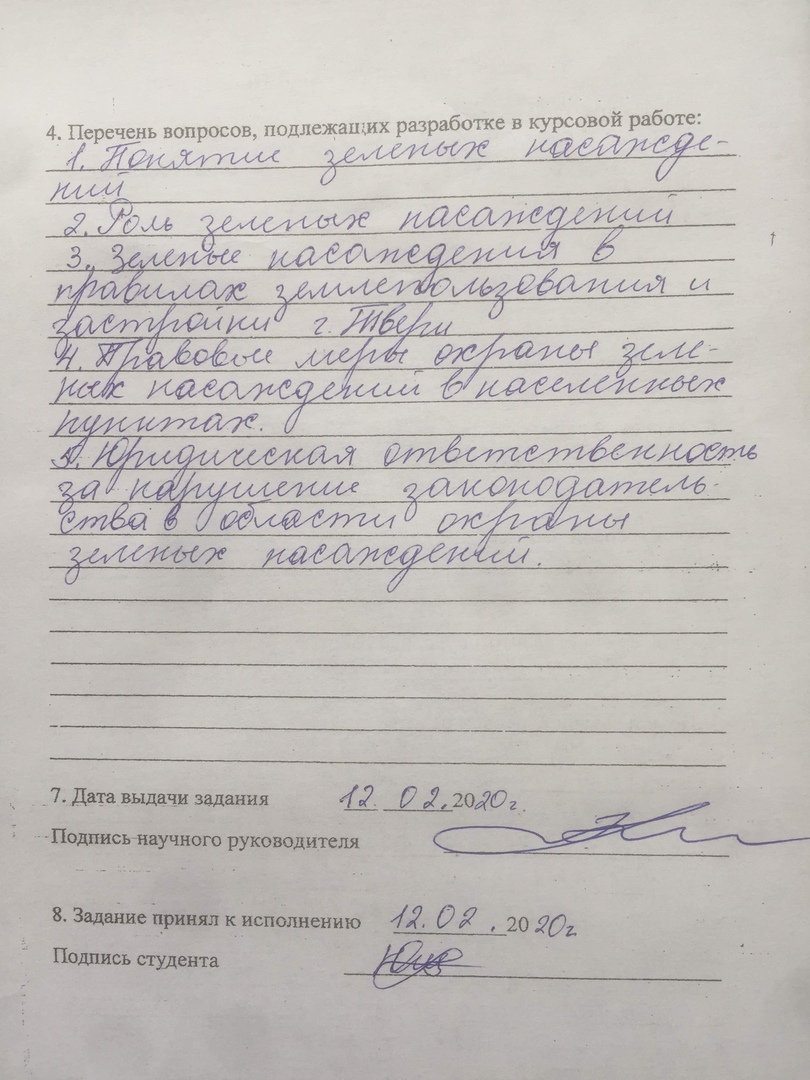 4. Перечень вопросов, подлежащих разработке в курсовой работе:
1. Понятие зеленых насажде-
ний
2. Роль зеленых насаждений
3. Зеленые насаждения в
правилах землепользования и
застройки г. Твери
4. Правовые меры охраны зеле-
ных насаждений в населенных
пунктах.
5. Юридическая ответственность
за нарушение законодатель-
ства в области охраны
зеленых насаждений.
7. Дата выдачи задания 12. 02. 2020г.
Подпись научного руководителя
8. Задание принял к исполнению 12.02. 2020г.
Подпись студента